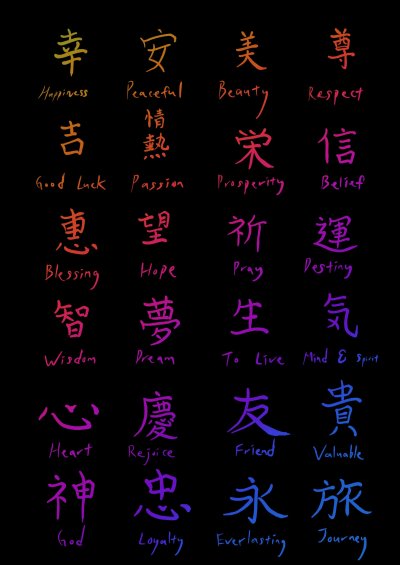 幸 安 美 尊
Happiness Peaceful Beauty Respect
吉 情熱 栄 信
Good Luck Passion Prosperity Belief
恵 望 祈 運
Blessing Hope Pray Destiny
智 夢 生 気
Wisdom Dream To Live Mind & Spirit
心 慶 友 貴
Heart Rejoice Friend Valuable
神 忠 永 旅
God Loyalty Everlasting Journey